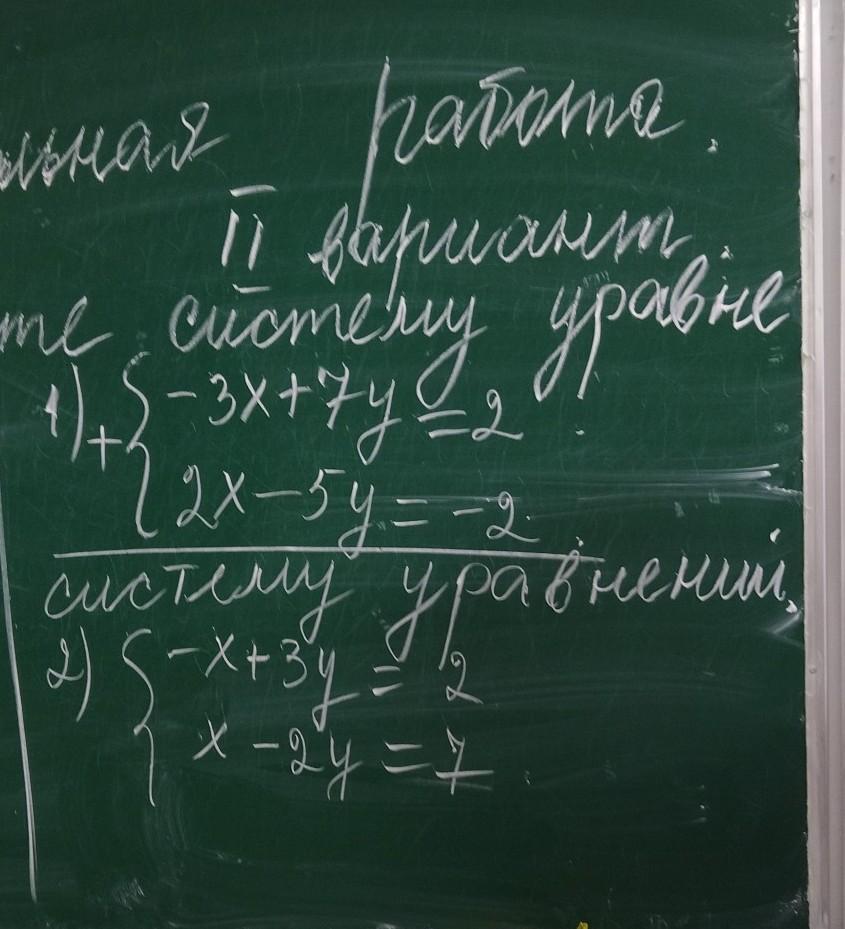 работа.
II вариант.
систему уравне
1) + { -3x+7y=2
2x-5y=-2.
систему уравнений,
2) { -x+3y=2
x-2y=7